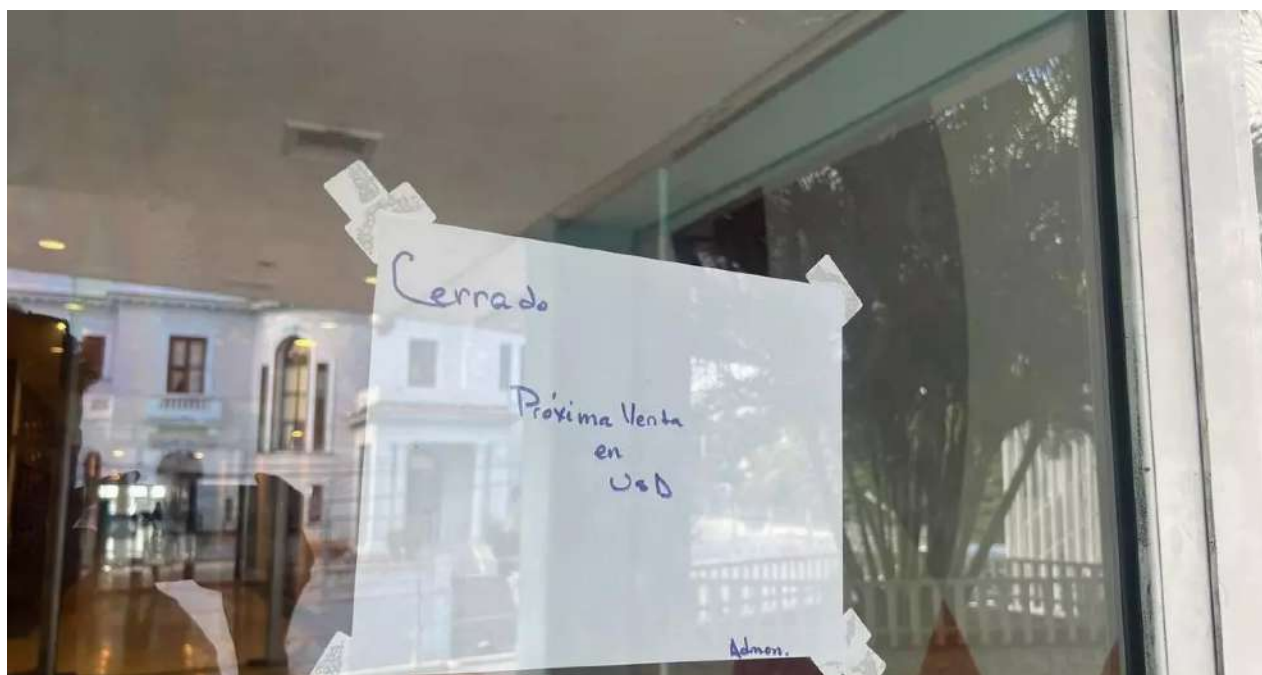 Cerrado
Próxima Venta
en
USD
Admon.